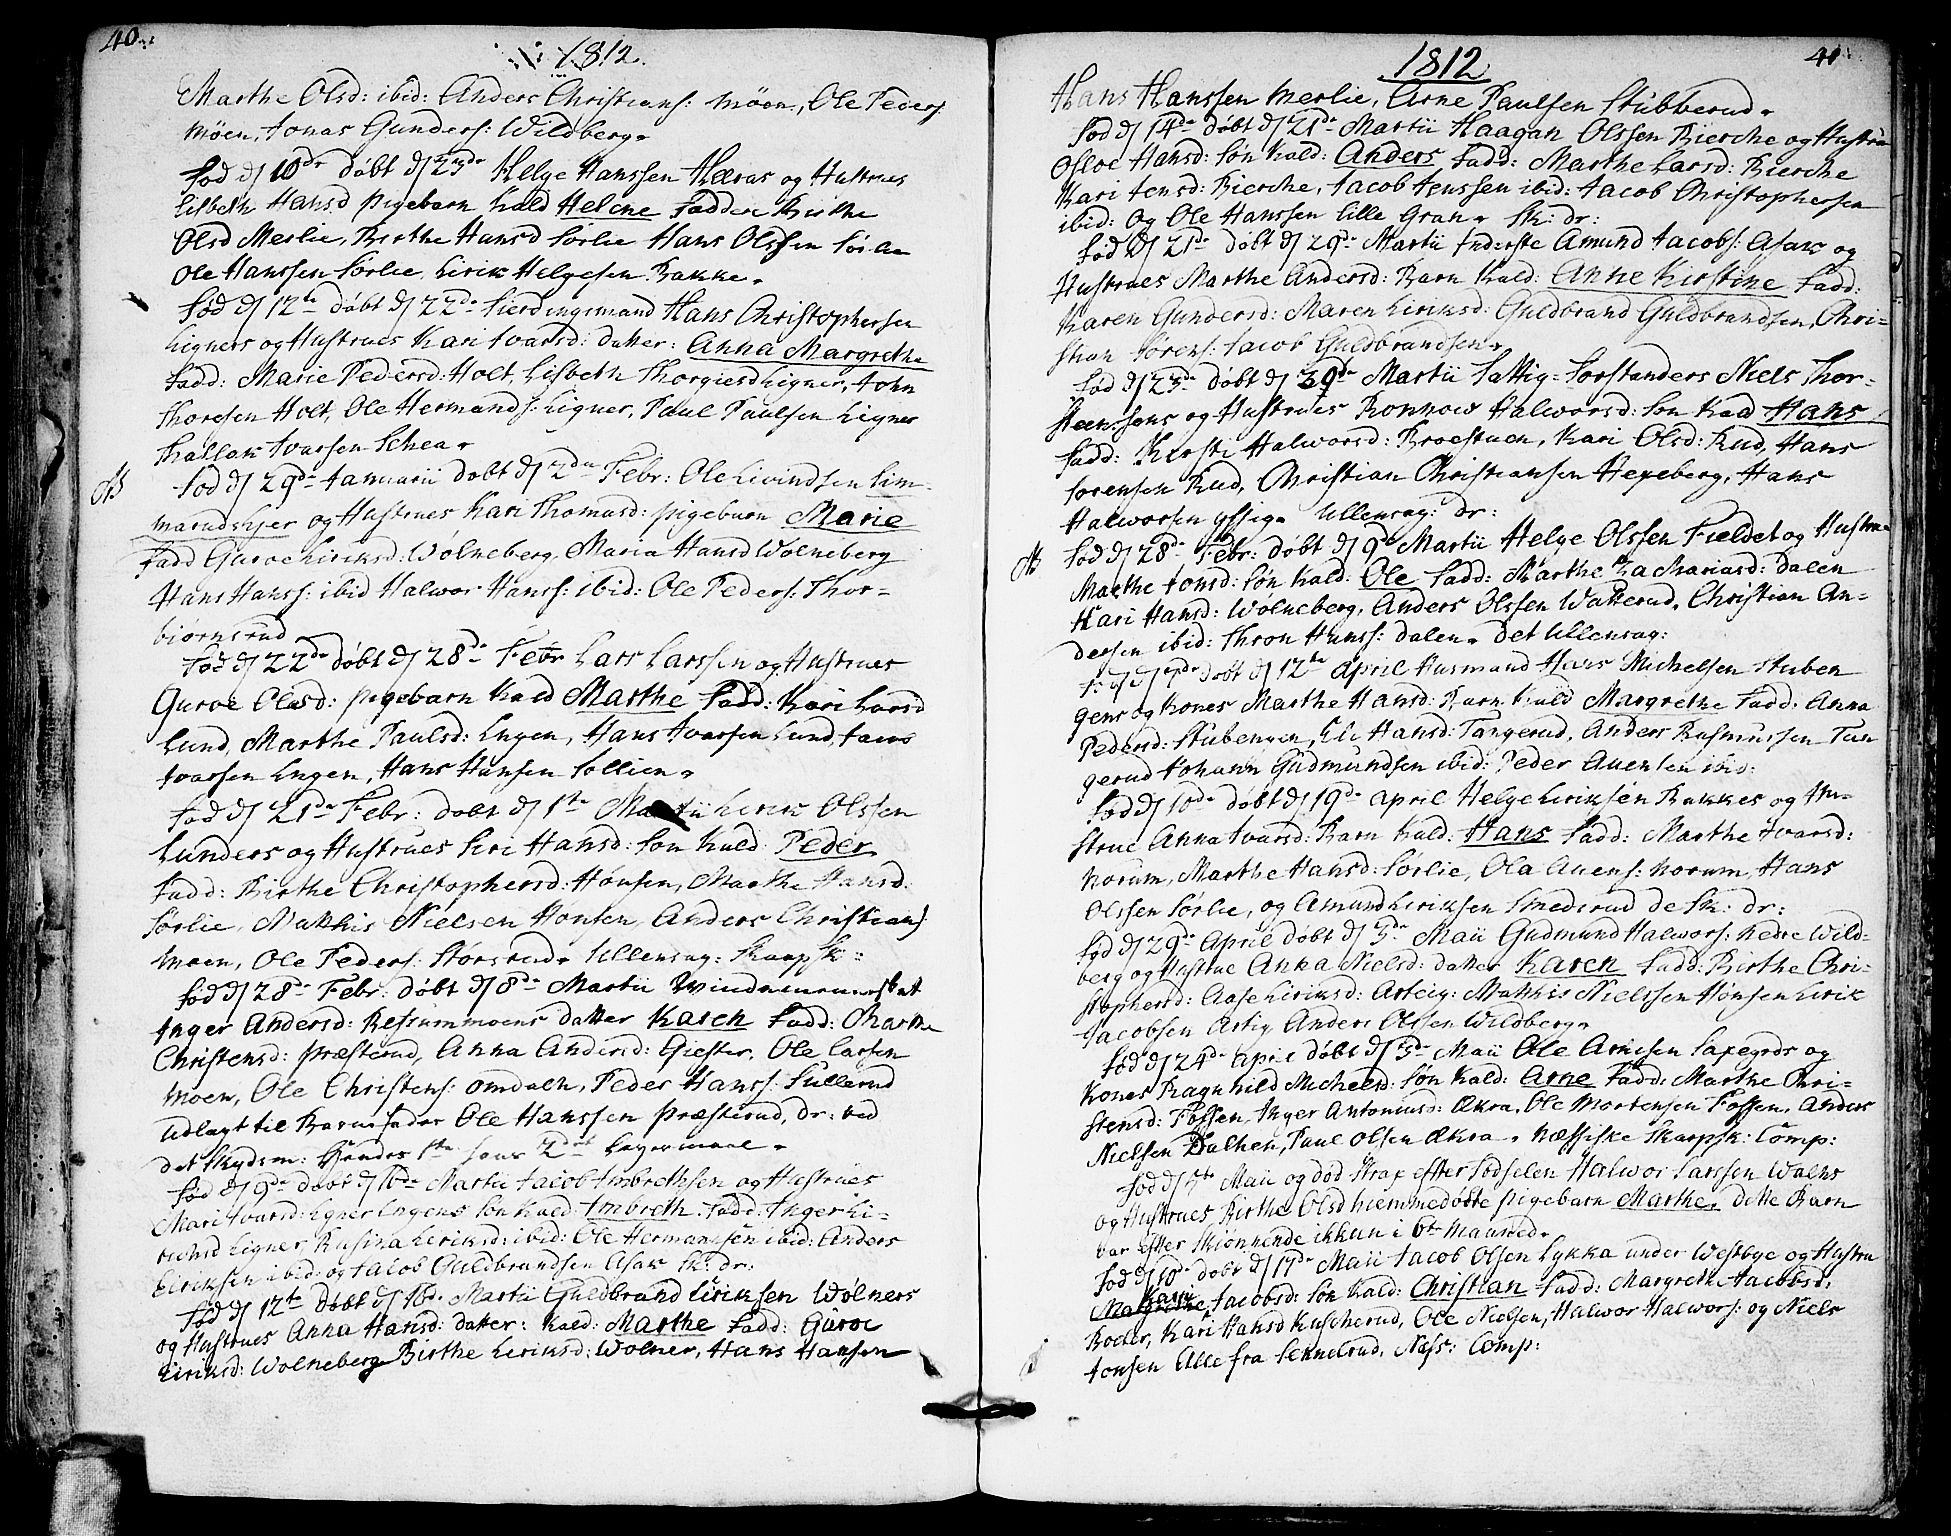 40.
1812.
Marthe Olsd: ibid: Anders Christians: Möen, Ole Peders:
Möen, Jonas Gunders: Wildberg.
Fød d 10de døbt d 23de Helge Hanssen Hæras og Hustrues
Lisbeth Hansd pigebarn kald Helene Faddere Birthe
Olsd Merlie, Birthe Hansd Sørlie Hans Olssen Sørlie
Ole Hanssen Sørlie, Eirik Helgesen Bakke.
Fød d 12te døbt d 22de Fierdingsmand Hans Christophersen
Ligners og Hustrues Kari Ivarsd: datter: Anna Margrethe
Fadd: Marie Pedersd: Holt, Lisbeth Thorgiersd Ligner, John
Thoresen Holt, Ole Hermands: Ligner, Paul Paulsen Ligner
Thallak Ivarsen Schea.
NB Fød d 29de Januarii døbt d 2den Febr: Ole Eivindsen Sim-
marudskjer og Hustrues Kari Thomasd: pigebarn Marie
Fadd Guroe Eiriksd: Wölneberg, Maria Hansd Wolneberg
Hans Hanss: ibid Halwor Hanss: ibid: Ole Peders: Thor-
biørnsrud
Fød d 22de døbt d 28de Febr Lars Larssen og Hustrues
Guroe Olsd: pigebarn kald Marthe Fadd: Kari Larsd
Lund, Marthe Paulsd: Engen, Hans Ivarsen Lund,
Ivarsen Engen, Hans Hansen Sollien.
Fød d 21de Febr: døbt d 1ste Martii Eirik Olssen
Lunders og Hustrues Siri Hansd: søn kald Peder
Fadd: Birthe Christophersd: Hønsen, Marthe Hansd:
Sørlie, Mathis Nielsen Hønsen, Anders Christians:
Moen, Ole Peders: Størsrud. Ullensag: Skarpsk:
Fød d 28de Febr: døbt d 8de Martii
Inger Andersd: Refsummoens datter Karen Fadd: Marthe
Christensd: præsterud, Anna Andersd: Giester, Ole Larsen
Moen, Ole Christens: Omdalen, Peder Hanss: Sullerud
Udlagt til Barnefader Ole Hanssen præsterud, dr: ved
det Skydsm: Hendes 1ste hans 2det Leyermaal.
Fød d 9de døbt d 16de Martii Jacob Imbrethsen og Hustrues
Mari Ivarsd: Ligner Engens søn kald: Imbreth. Fadd: Inger Ei-
riksd Ligner Rusina Eiriksd: ibid: Ole Hermansen ibid: Anders
Eiriksen ibid: og Jacob Guldbrandsen Asak Sk: dr:
Fød d 12te døbt d 16de Martii Guldbrand Eiriksen Wölners
og Hustrues Anna Hansd: datter: kald: Marthe Fadd: Guroe
Eiriksd: Wolneberg Birthe Eiriksd: Wölner, Hans Hansen
41
1812
Hans Hanssen Merlie, Arne Paulsen Stubberud.
Fød d 14de døbt d 21de Martii Haagan Olssen Bierche og Hustru
Osloe Hansd: søn kald: Anders Fadd: Marthe Larsd: Bierche
Kari Jensd: Bierche, Jacob Jenssen ibid: Jacob Christophersen
ibid: og Ole Hanssen lille Gran. Sk: dr:
Fød d 21de døbt d 29de Martii Inderste Amund Jacobs: Asak og
Hustrues Marthe Andersd: Barn kald: Anne Kirstine Fadd:
Karen Gundersd: Maren Eiriksd: Guldbrand Guldbrandsen, Chri-
stian Sørens: Jacob Guldbrandsen.
Fød d 23de døbt d 29de Martii Fattig-Forstanders Niels Thor-
stensens og Hustrues Ronnow Halworsd: søn kald Hans
Fadd: Kirsti Halworsd: Broestuen, Kari Olsd: Rud, Hans
Sørensen Rud, Christian Christiansen Hexeberg, Hans
Halworsen yssig. Ullensag: dr:
NB Fød d 28de Febr: døbt d 9de Martii Helge Olssen Fieldet og Hustrue
Marthe Jonsd: søn kald: Ole Fadd: Marthe Zachariasd: Dalen
Kari Hansd: Wölneberg, Anders Olssen Watterud, Christian An-
dersen ibid: Thron Hanss: Dalen. det Ullensag:
Fød d døbt d 12te April Husmand Hans Michelsen Stuben
gens og Kones Marthe Hansd: Barn kald Margrethe Fadd: Anna
Pedersd: Stubengen, Eli Hansd: Tangerud, Anders Rasmussen Tan
gerud Johann Gudmundsen ibid: Peder Auensen ibid:
Fød d 10de døbt d 19de April Helge Eiriksen Bakkes og Hu-
strue Anna Ivarsd: Barn kald: Hans Fadd: Marthe Ivarsd:
Norum, Marthe Hansd: Sørlie, Ola Auens: Norum, Hans
Olssen Sørlie, og Amund Eiriksen Smedsrud de Sk: dr:
Fød d 29de April døbt d 3de Maii Gudmund Halwors: Nedre Wild-
berg og Hustrue Anna Nielsd: datter Karen Fadd: Birthe Chri-
stophersd: Aase Eiriksd: Arteig: Mathis Nielssen Hønsen Eirik
Jacobsen Artig Anders Olssen Wildberg.
Fød d 24de April døbt d 3de Maii Ole Arnesen Saxegrds og
Kones Ragnhild Michelsd: søn kald: Arne Fadd: Marthe Chri-
stensd: Fossen, Inger Antoniusd: Økra, Ole Mortensen Fossen, Anders
Nielsen Dalhen, Paul Olsen Økra. Næssiske Skarpsk: Comp:
Fød d 5te Maii og død strax efter Fødselen Halwor Larssen Wolns
og Hustrues Birthe Olsd hiemmedøbte pigebarn Marthe, dette Barn
var efter Skiønnende ikkun i 6te Maaned.
Fød d 10de døbt d 17de Maii Jacob Olsen Lykka under Westbye og Hustru
Karn
Margrethe Jacobsd: søn kald: Christian Fadd: Margreth Jacobsd,
Roder, Kari Hansd Kuscherud, Ole Nielsen, Halwor Halwors: og Niels
Jonsen Alle fra Sennerud. Næs: Comp: